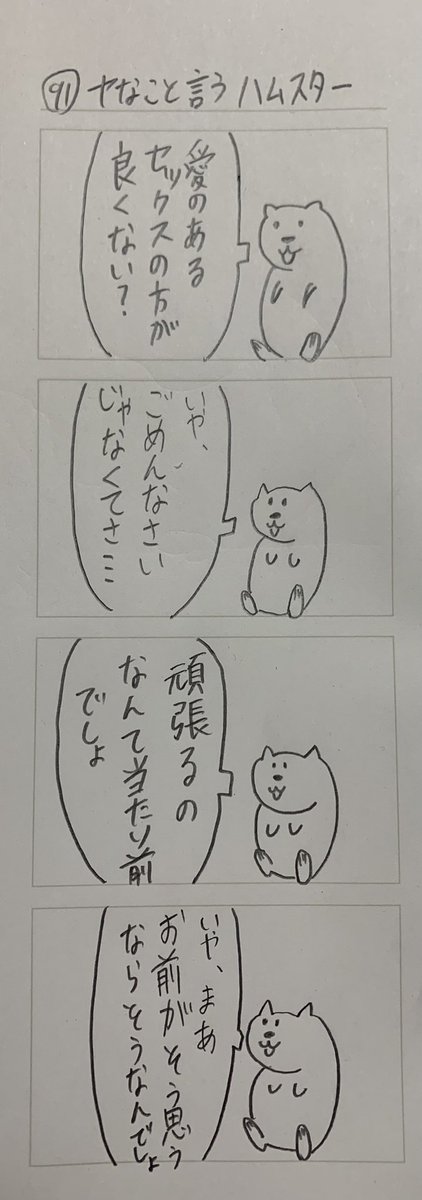 91 ヤなこと言うハムスター
愛のある
セックスの方が
良くない?
いや、
ごめんなさい
じゃなくてさ…
頑張るの
なんて当たり前
でしょ
いや、まあ
お前がそう思う
ならそうなんでしょ